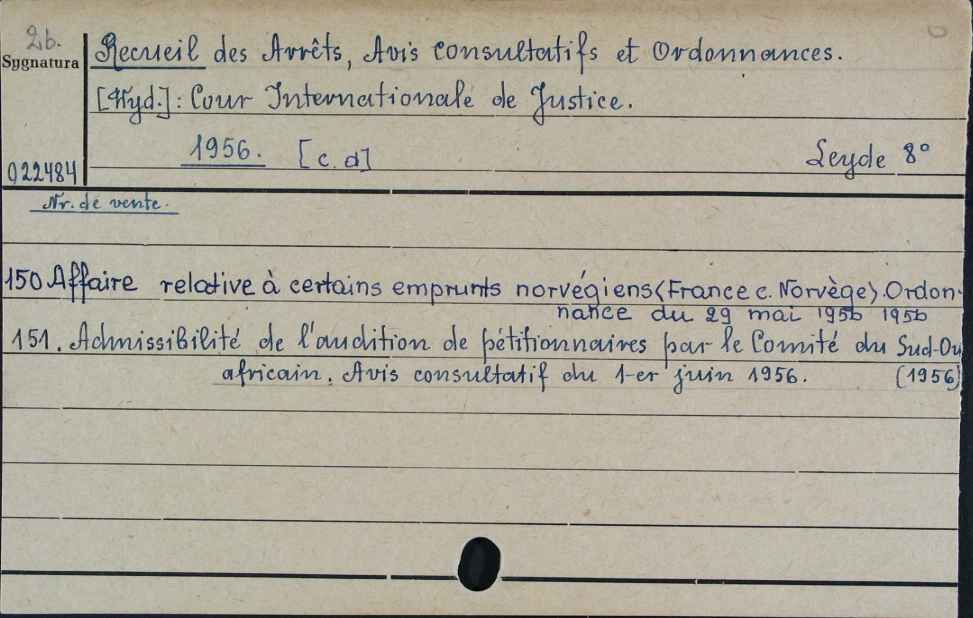 2b.
Sygnatura
Recueil des Arrêts, Avis consultatifs et Ordonnances.
[Wyd.]: Cour Internationale de Justice.
1956. [c. d] Leyde 8°
022484
Nr. de vente.
150 Affaire relative à certains emprunts norvégiens (France c. Norvège). Ordon-
nance du 29 mai 1956 1956
151. Admissibilité de l'audition de pétitionnaires par le Comité du Sud-Ou
africain. Avis consultatif du 1-er juin 1956. (1956)